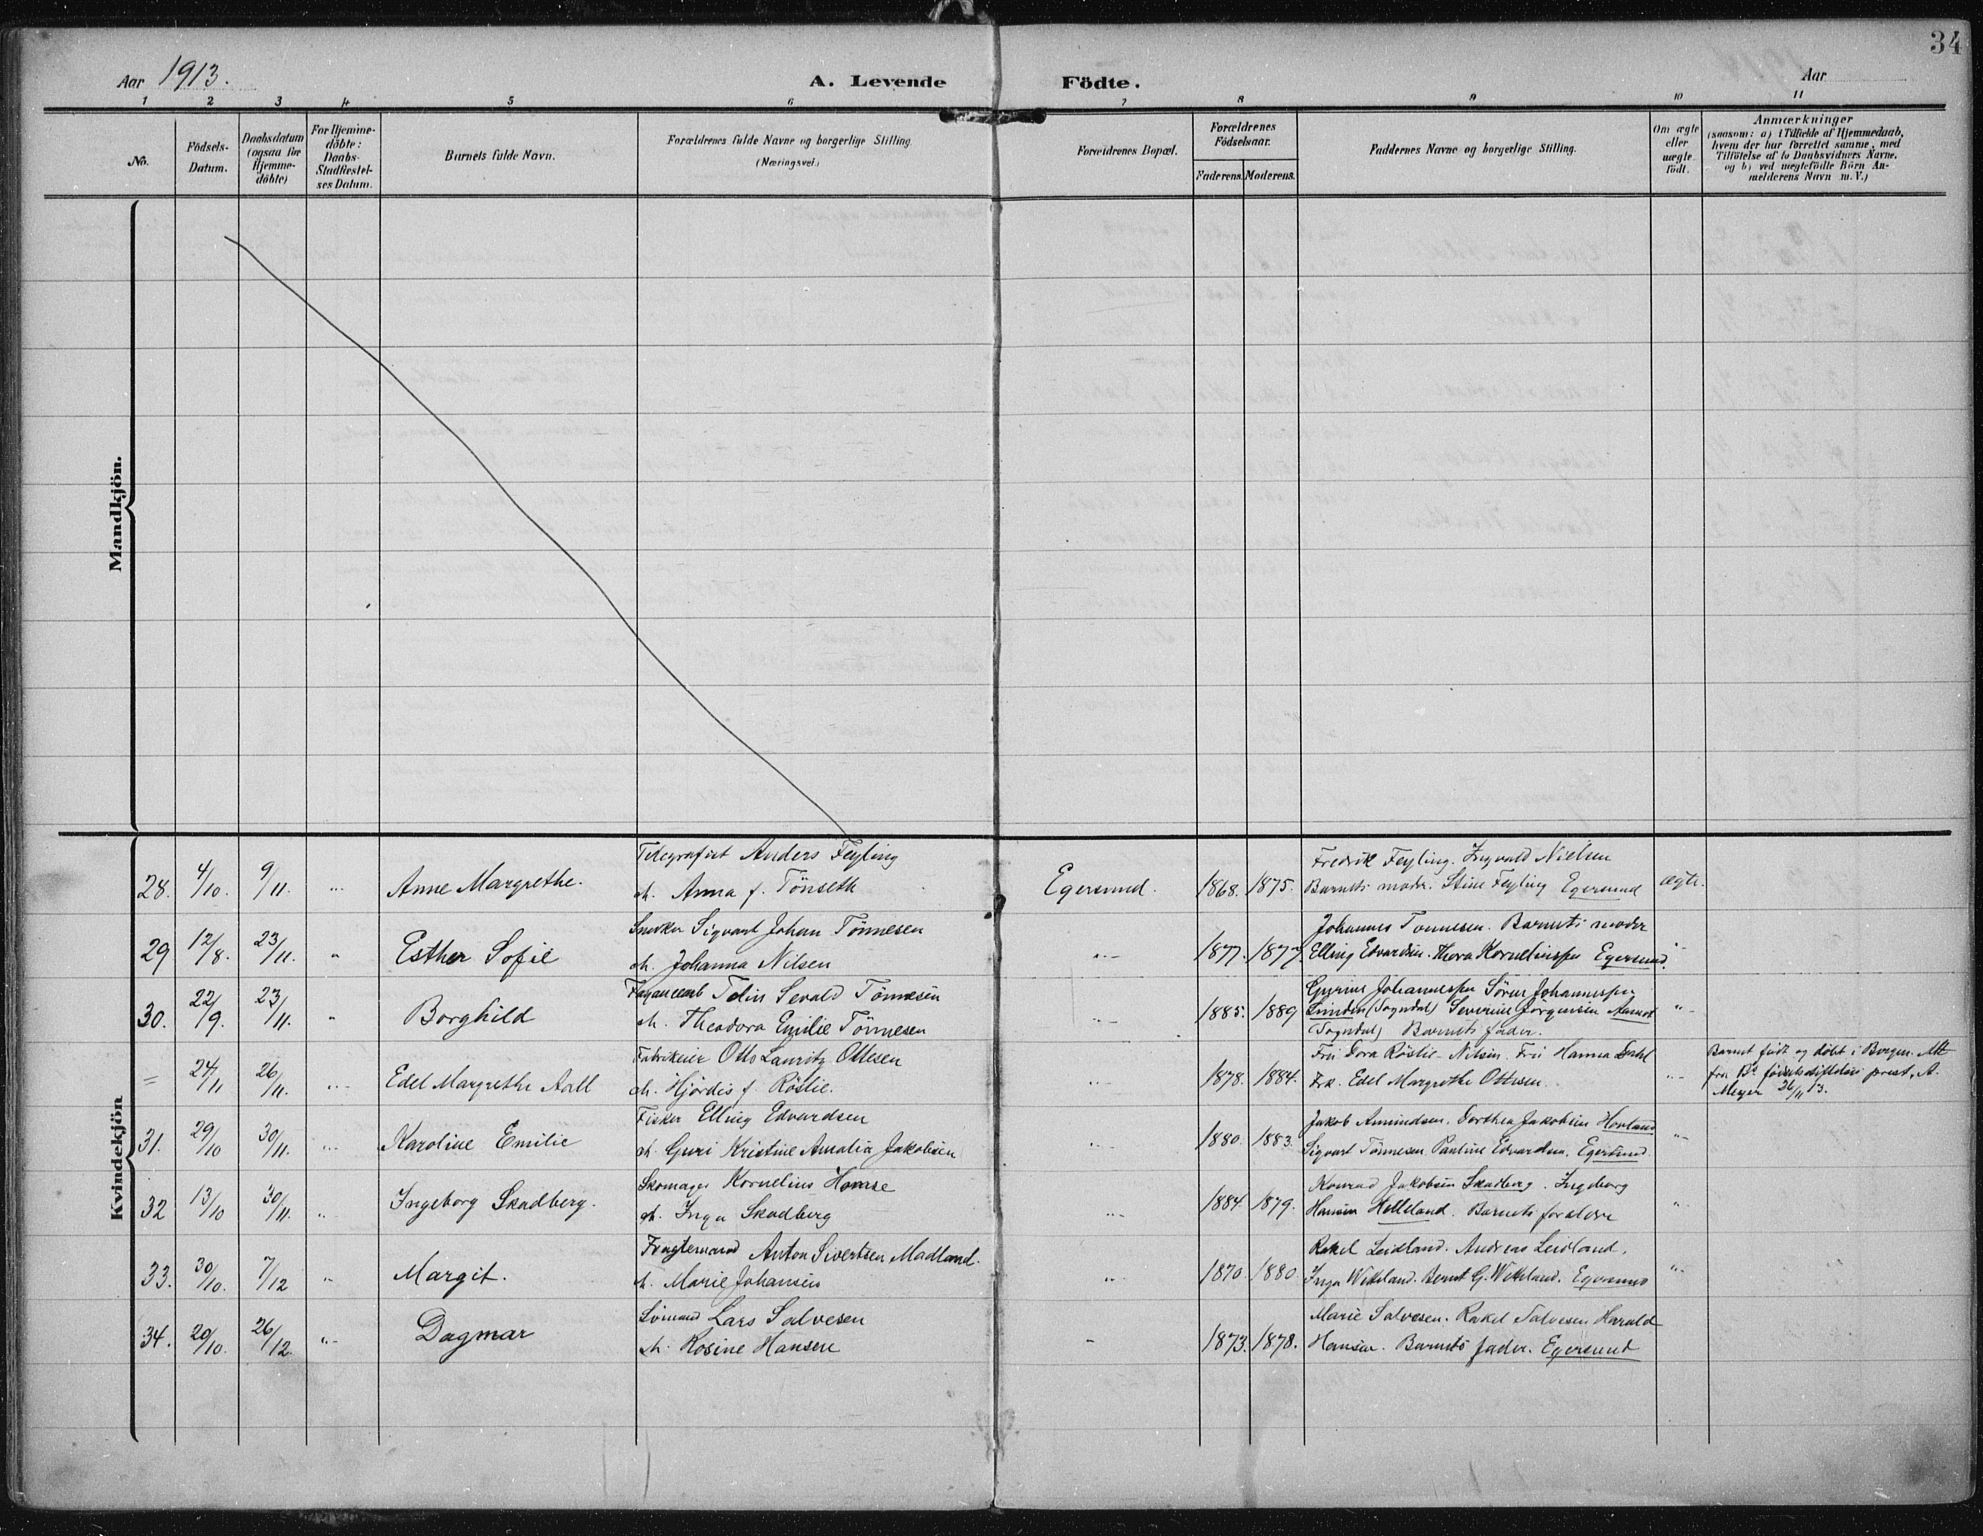 34
Aar 1913.
A. Levende Födte.
Aar
1 2 3 4 5 6 7 8 9 10 11
No.
Födsels-Datum.
Daabsdatum (ogsaa for Hjemme-döbte)
For Hjemme-döbte: Daabs-Stadfæstel-ses Datum.
Barnets fulde Navn.
Forældrenes fulde Navne og borgerlige Stilling (Næringsvei.)
Forældrenes Bopæl.
Forældrenes Födselsaar.
Faderens. Moderens.
Faddernes Navne og borgerlige Stilling.
Om ægte eller uægte födt.
Anmærkninger
(saasom: a) i Tilfælde af Hjemmedaab,
hvem der har forrettet samme, med
Tilföielse af to Daabsvidners Navne,
og b) ved uægtefödte Börn An-
melderens Navn m. V.)
Mandkjön.
Kvindekjön
Telegrafist Anders Feyling
28. 4/10. 9/11. Anne Margrethe. m. Anna f. Tönseth Egersund. 1868. 1875.
Fredrik Feyling. Ingvald Nielsen
Barnets moder. Stine Feyling Egersund ægte.
Snedker Sigvart Johan Tönnesen
29 12/8. 23/11. " Esther Sofie m. Johanna Nilsen "- 1877. 1877.
Johannes Tonnesen. Barnets moder
Elling Edvardsen. Thora Korneliussen Egersund. "-
Tolin Sevald Tönnesen
30. 22/9. 23/11. " Borghild m. Theodora Emilie Tönnesen "- 1885. 1889
Gyrine Johannessen Sören Johannessen
(Sogndal) Severine Jörgensen
(Sogndal) Barnets fader. "-
Otto Lauritz Ottesen
= 24/11 26/11. "- Edel Margrethe Aall m. Hjördis f. Röslie. "- 1878. 1884.
Fru Dora Röslie-Nilsen. Fru Hanna Dahl
Frk. Edel Margrethe Ottesen. "-
Barnet födt og döbt i Bergen. Att.
fra prest, A.
Meyer 26/11 13.
Fisker Elling Edvardsen
31. 29/10 30/11. "- Karoline Emilie m. Guri Kristine Amalia Jakobsen "- 1880. 1883.
Jakob Amundsen. Dorthea Jakobsen Hovland
Sigvart Tönnesen. Pauline Edvardsen. Egersund. "-
Skomager Kornelius Homse
32 13/10 30/11. "- Ingeborg Skadberg. m. Inga Skadberg "- 1884. 1879.
Konrad Jakobsen Skadberg. Ingeborg
Hansen Helleland. Barnets forældre "-
Fragtemand Anton Sivertsen Madland.
33. 30/10. 7/12 "- Margit. m. Marie Johansen "- 1870. 1880
Rakel Leidland. Andreas Leidland.
Inga Wetteland. Bernt G. Wetteland. Egersund "-
Sömand Lars Salvesen
34. 20/10. 26/12. "- Dagmar m. Rosine Hansen " 1873. 1878.
Marie Salvesen. Rakel Salvesen Harald
Hansen. Barnets fader. Egersund